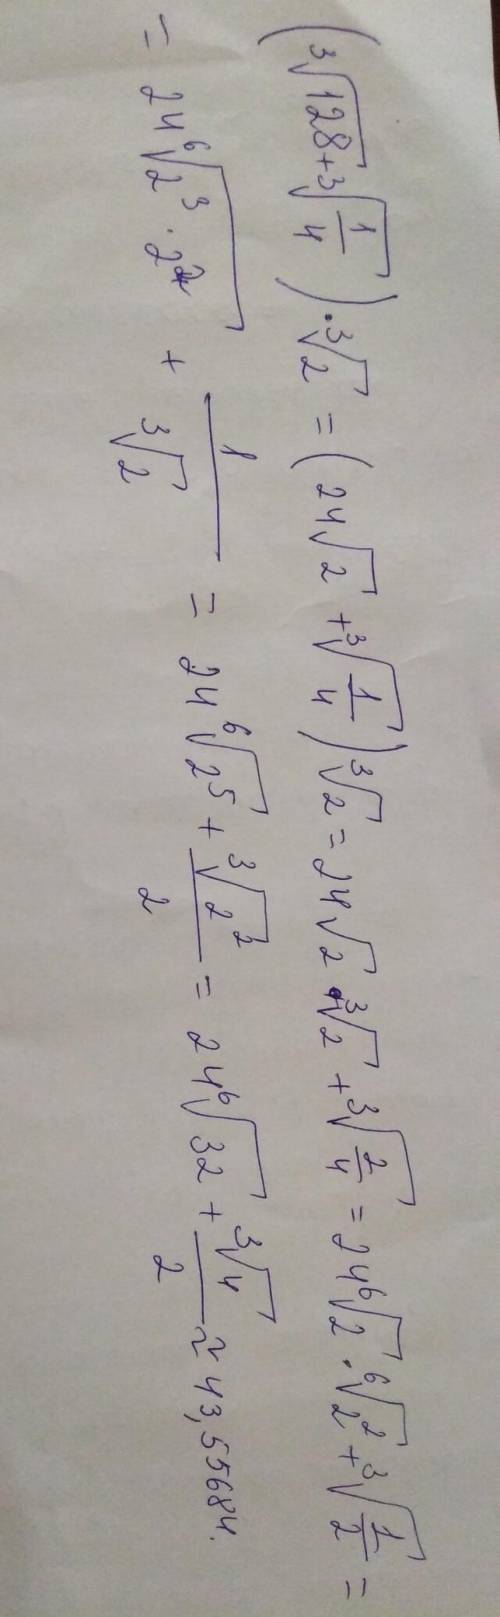 (³√128 + ³√(1/4)) · ³√2 = (24√2 + ³√(1/4)) ³√2 = 24√2 · ³√2 + ³√(2/4) = 24 ⁶√2 · ⁶√2² + ³√(1/2) =
= 24 ⁶√(2³ · 2²) + 1/³√2 = 24 ⁶√2⁵ + ³√2²/2 = 24 ⁶√32 + ³√4/2 ≈ 43,55684.